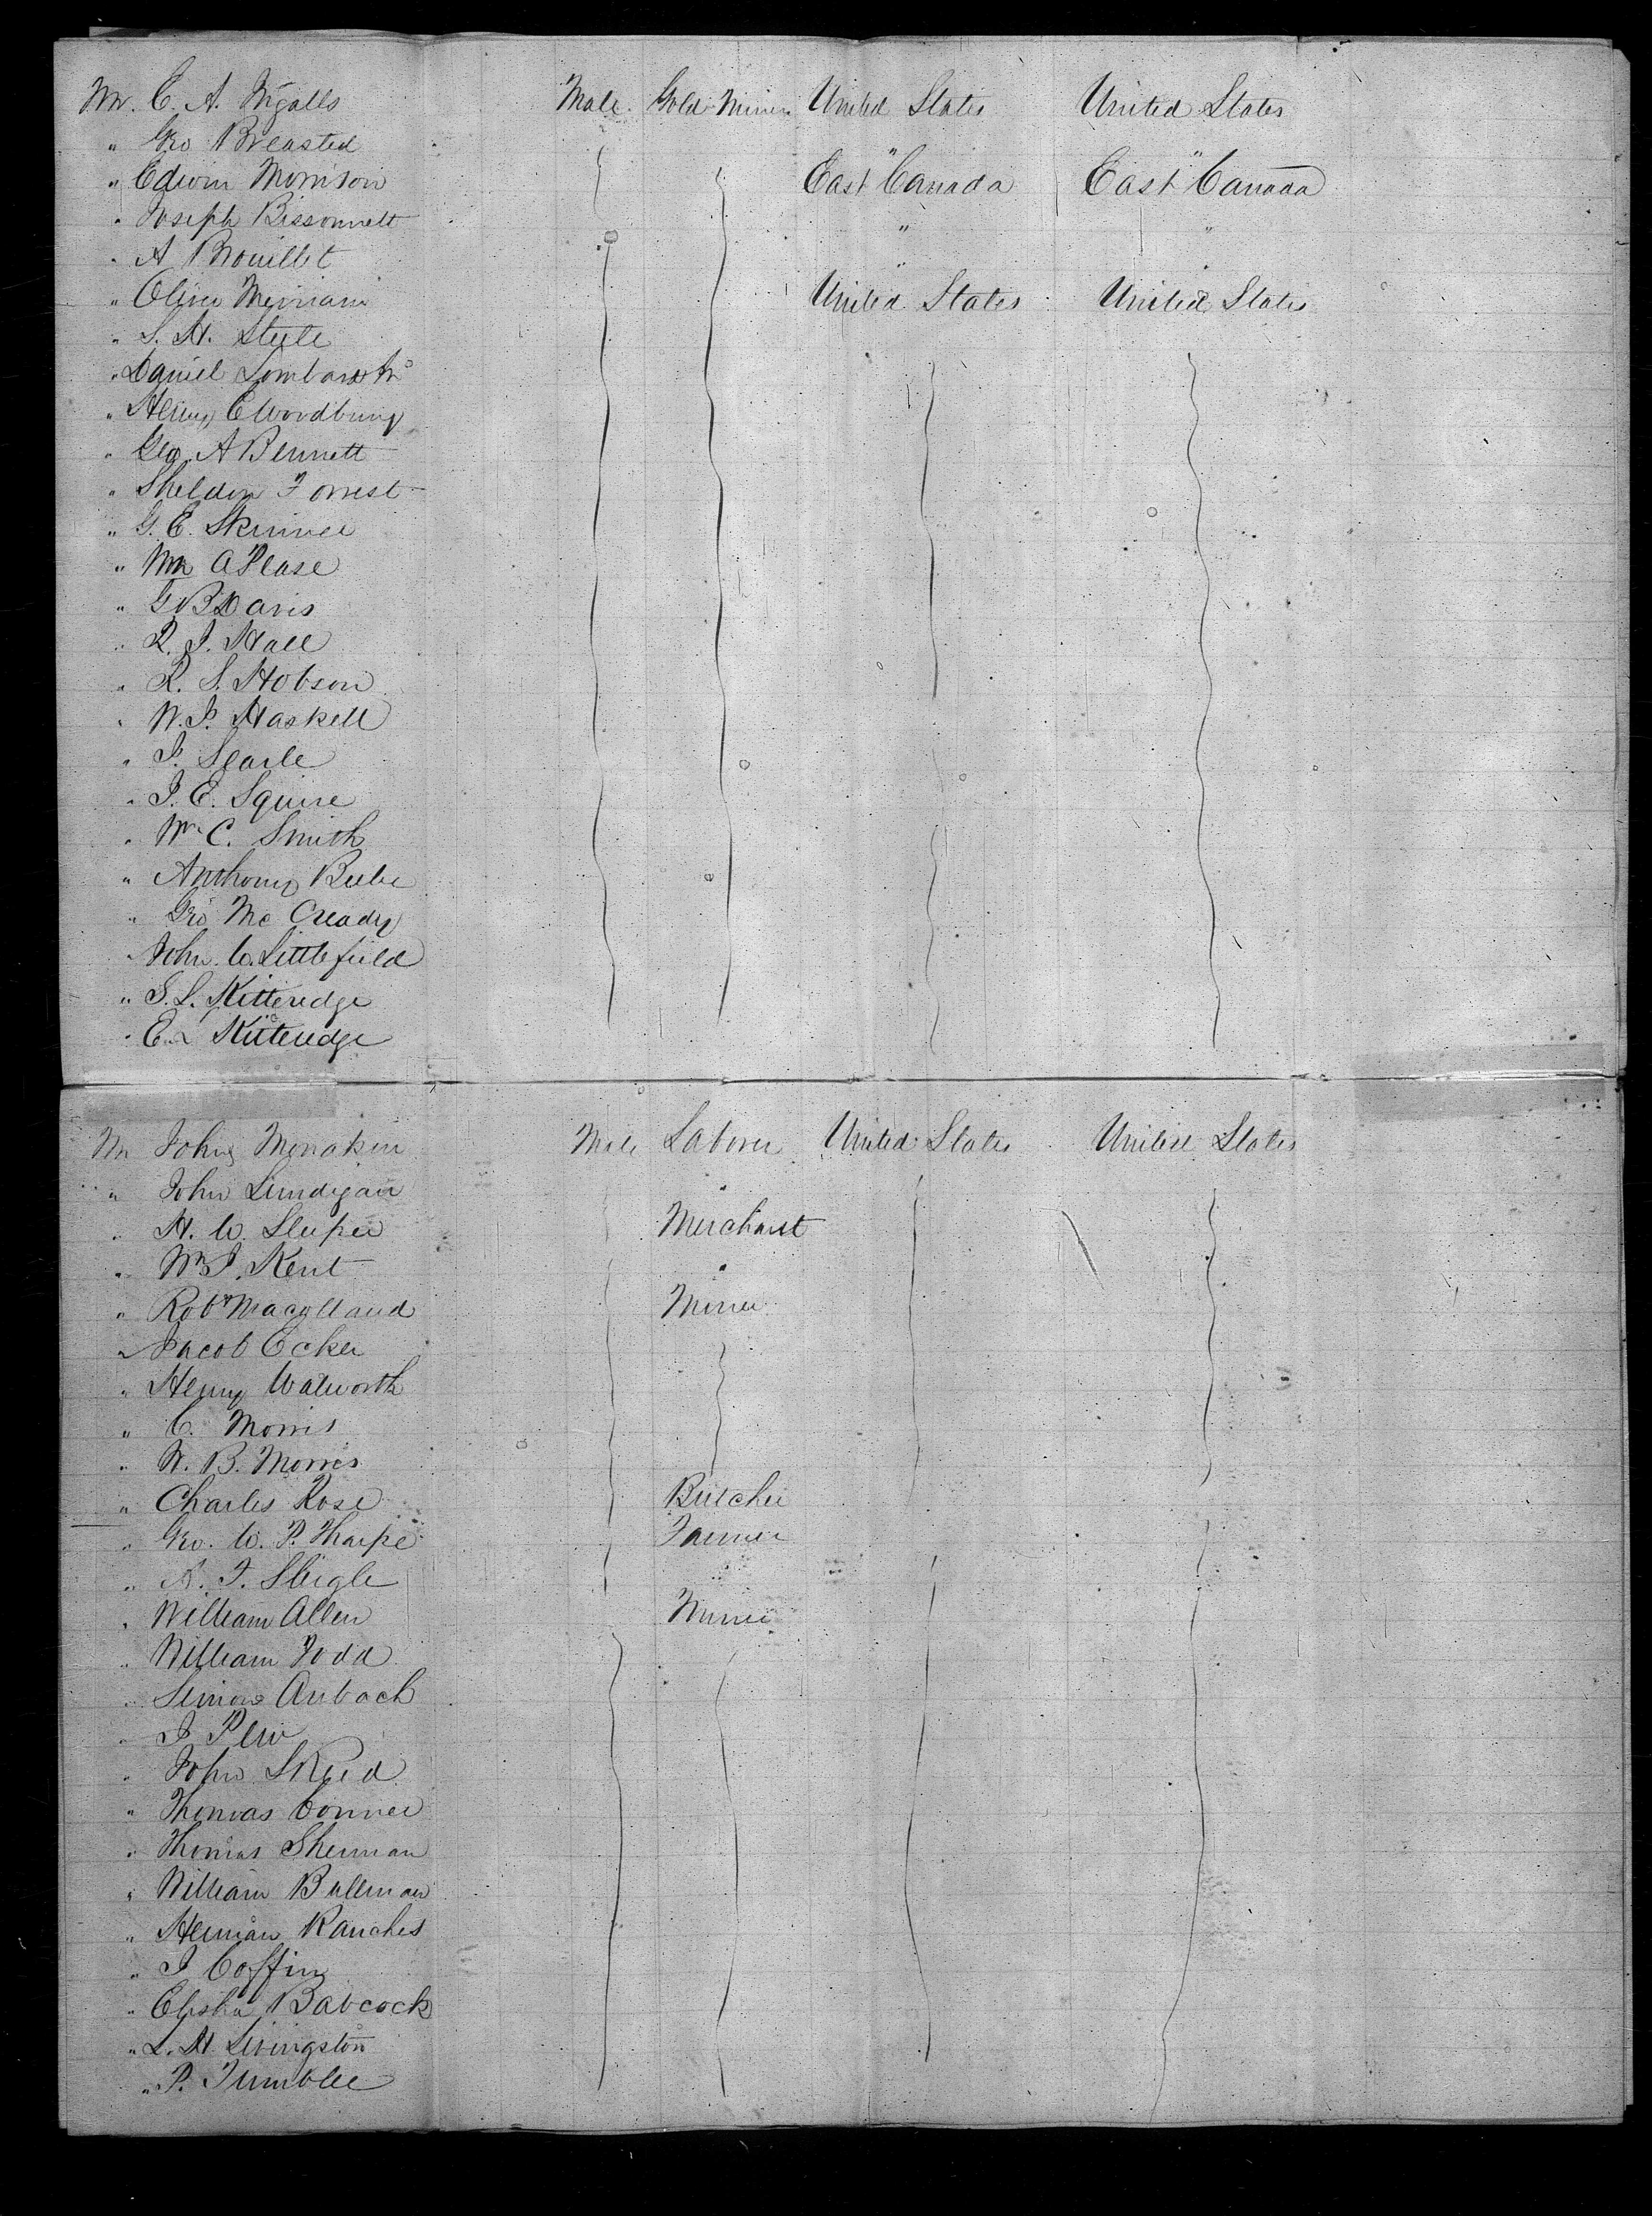 Mr. C. A. Ingalls Male Gold Miner United States United States
" Geo Breasted " "
" Edwin Morrison East Canada East Canada
" Joseph Bissonnett " "
" A Brouillet " "
" Oliver Merriam United States United States
" S. H. Steele
" Daniel Lombard Jr
" Henry E Woodbury
" Geo. A Bennett
" Sheldon Forrest
" G. E. Skinner
" Wm A Pease
" G B Davis
" R. J. Hall
" R. S. Hobson
" W. P. Haskell
" J. Searle
" J. E. Squire
" Wm C. Smith
" Anthony Beebe
" Geo Mc Cready
" John C. Littlefield
" S. L. Kitteredge
" E L Kitteredge
Mr John Monakin Male Laborer United States United States
" John Lundigan "
" H. C. Sleeper Merchant
" Wm J. Kent "
" Robt Macolland Miner
" Jacob Ecker
" Henry Walworth
" C. Morris
" W. B. Morris
" Charles Rose Butcher
" Geo. C. P. Tharpe Farmer
" A. F. Sleigle "
" William Allen Miner
" William Todd
" Simon Aubach
" J Plew
" John Skeed
" Thomas Conner
" Thomas Sherman
" William Bullman
" Herman Ranches
" J Coffin
" Elisha Babcock
" L. H Livingston
" P. Tumblee